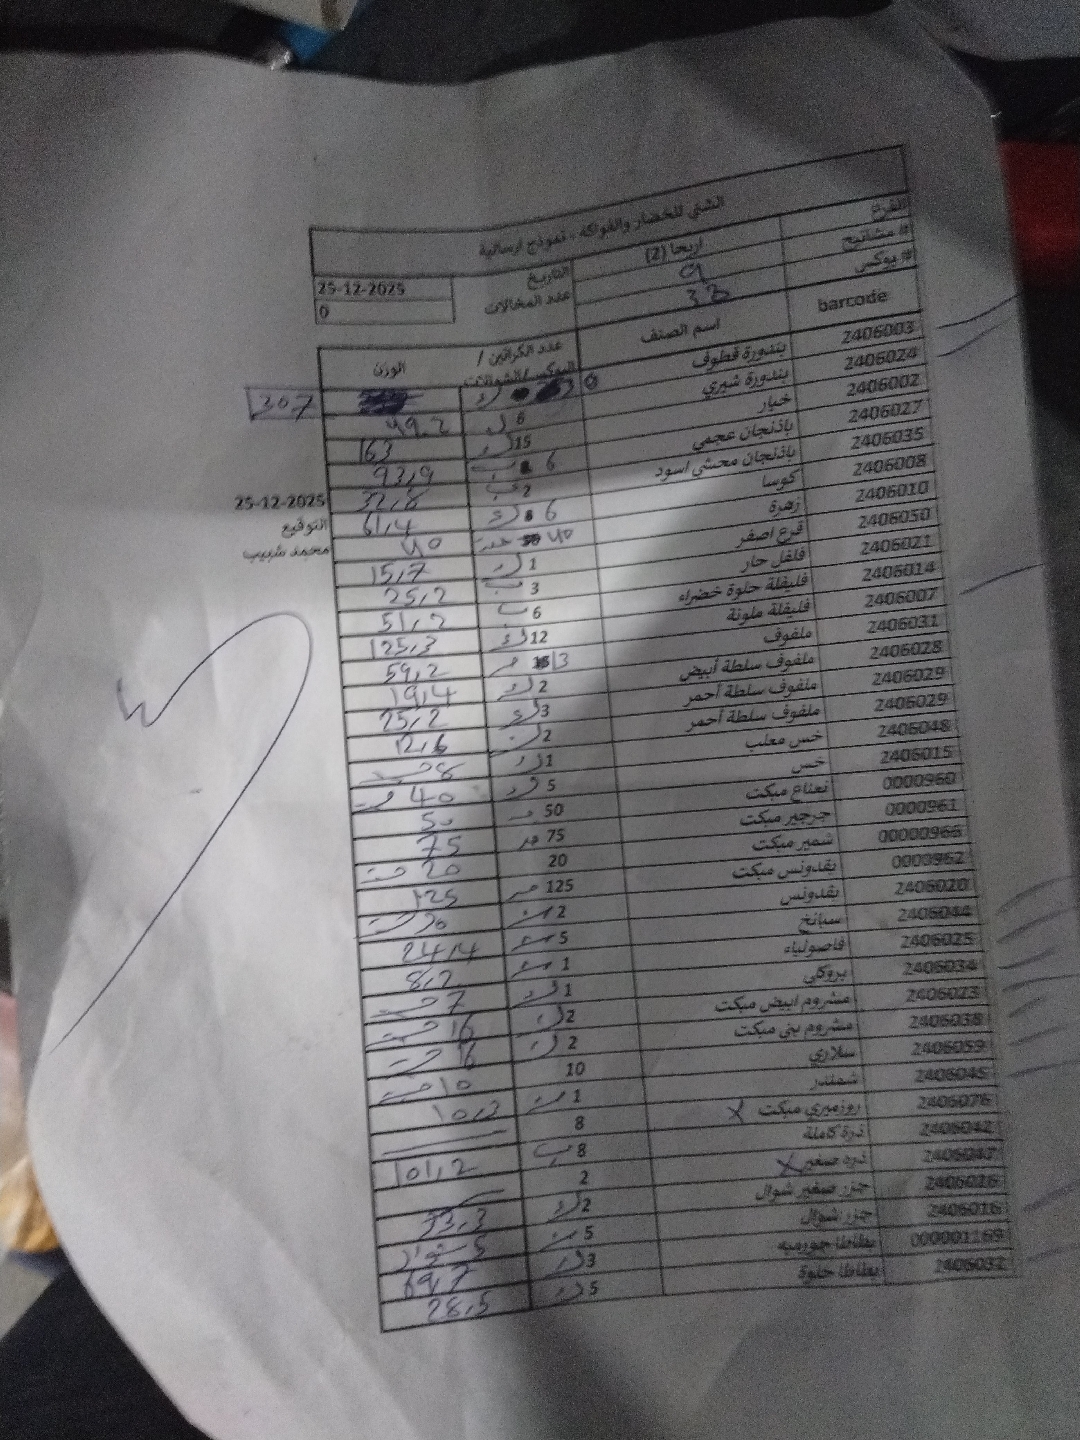 الشني للخضار والفواكه - نموذج ارسالية
الفرع اريحا (2) التاريخ 25-12-2025
# مشاتيح 9 عدد المخالات 0
# بوكس
barcode اسم الصنف عدد الكراتين / البوكس / الشوالات الوزن
2406003 بندورة قطوف 307
2406024 بندورة شيري 6 49.2
2406002 خيار 15 163
2406027 باذنجان عجمي 6 93,9
2406035 باذنجان محشي اسود 2 32,8
2406008 كوسا 6 61,4
2406010 زهرة 40 40
2406050 قرع اصفر 1 15,7
2406021 فلفل حار 3 25,2
2406014 فليفلة حلوة خضراء 6 51,2
2406007 فليفلة ملونة 12 125,3
2406031 ملفوف 13 59,2
2406028 ملفوف سلطة أبيض 2 19,4
2406029 ملفوف سلطة أحمر 3 25,2
2406029 ملفوف سلطة أحمر 2 12,6
2406048 خس معلب 1 8
2406015 خس 5 40
0000960 نعناع مبكت 50 50
0000961 جرجير مبكت 75 75
00000966 شمير مبكت 20 20
0000962 بقدونس مبكت 125 125
2406020 بقدونس 2
2406044 سبانخ 5 24,4
2406025 فاصولياء 1 8,2
2406034 بروكلي 1 7
2406023 مشروم ابيض مبكت 2 16
2406038 مشروم بني مبكت 2 16
2406059 سلاري 10 10
2406045 شمندر 1 10,2
2406076 روزميري مبكت x 8
2406042 ذرة كاملة 8 101,2
2406047 ذره صغير x 2
2406026 جزر صغير شوال 2 33,3
2406016 جزر شوال 5 5 شوال
000001169 بطاطا جورميه 3 69,7
2406032 بطاطا حلوة 5 28,5
25-12-2025
التوقيع
محمد شبيب